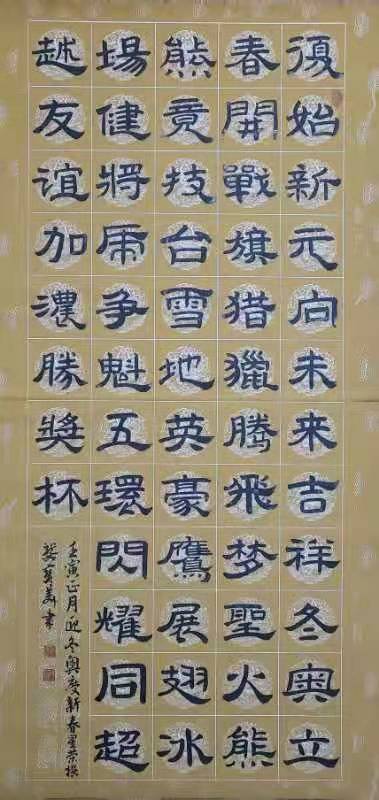 復始新元向未来吉祥冬奥立
春開戰旗猎獵騰飛梦聖火熊
熊竟技台雪地英豪鷹展翅冰
場健將争魁五環閃耀同超
越友谊加濃勝獎杯
壬寅正月迎冬奥度新春星荣撰
書